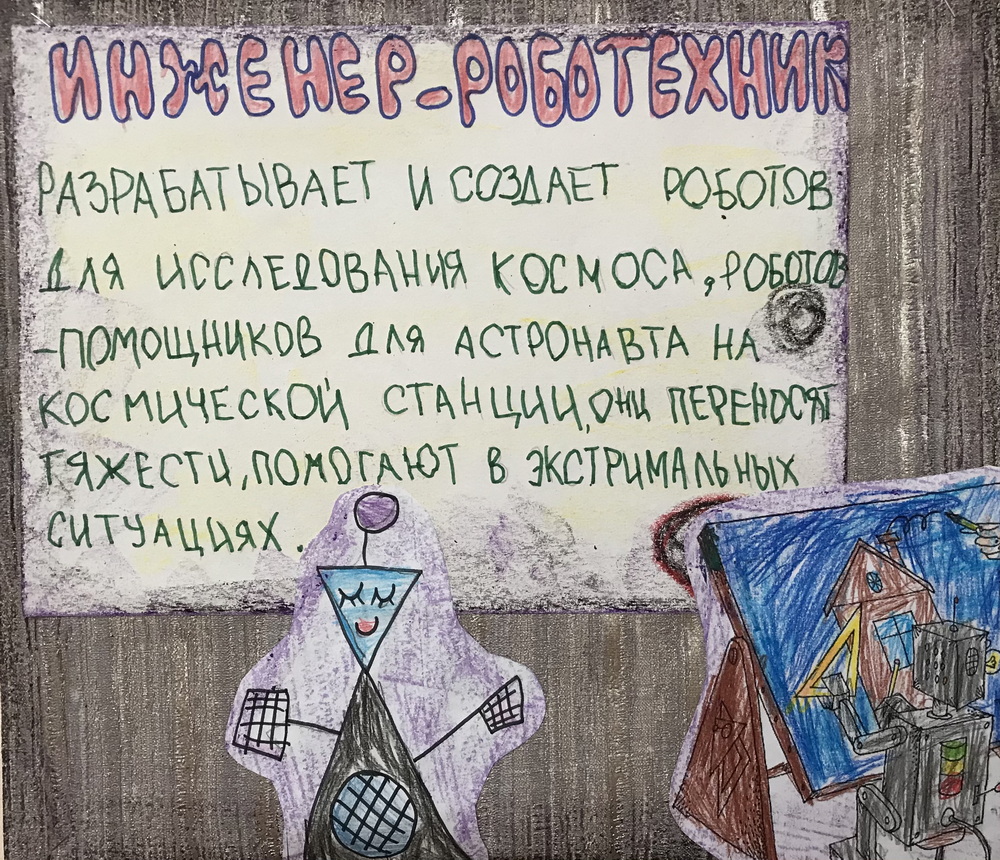 ИНЖЕНЕР-РОБОТЕХНИК
РАЗРАБАТЫВАЕТ И СОЗДАЕТ РОБОТОВ
ДЛЯ ИССЛЕДОВАНИЯ КОСМОСА, РОБОТОВ
-ПОМОЩНИКОВ ДЛЯ АСТРОНАВТА НА
КОСМИЧЕСКОЙ СТАНЦИИ, ОНИ ПЕРЕНОСЯТ
ТЯЖЕСТИ, ПОМОГАЮТ В ЭКСТРИМАЛЬНЫХ
СИТУАЦИЯХ.